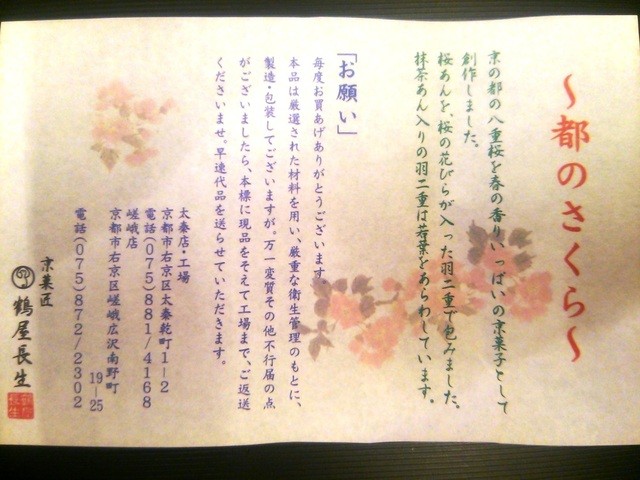 ～都のさくら～
京の都の八重桜を春の香りいっぱいの京菓子として
創作しました。
桜あんを、桜の花びらが入った羽二重で包みました。
抹茶あん入りの羽二重は若葉をあらわしています。
「お願い」
毎度お買あげありがとうございます。
本品は厳選された材料を用い、厳重な衛生管理のもとに、
製造・包装してございますが。万一変質その他不行届の点
がございましたら、本標に現品をそえて工場まで、ご返送
くださいませ。早速代品を送らせていただきます。
太秦店・工場
京都市右京区太秦乾町1-2
電話(075)881/4168
嵯峨店
京都市右京区嵯峨広沢南野町
19-25
電話(075)872/2302
京菓匠
鶴屋長生